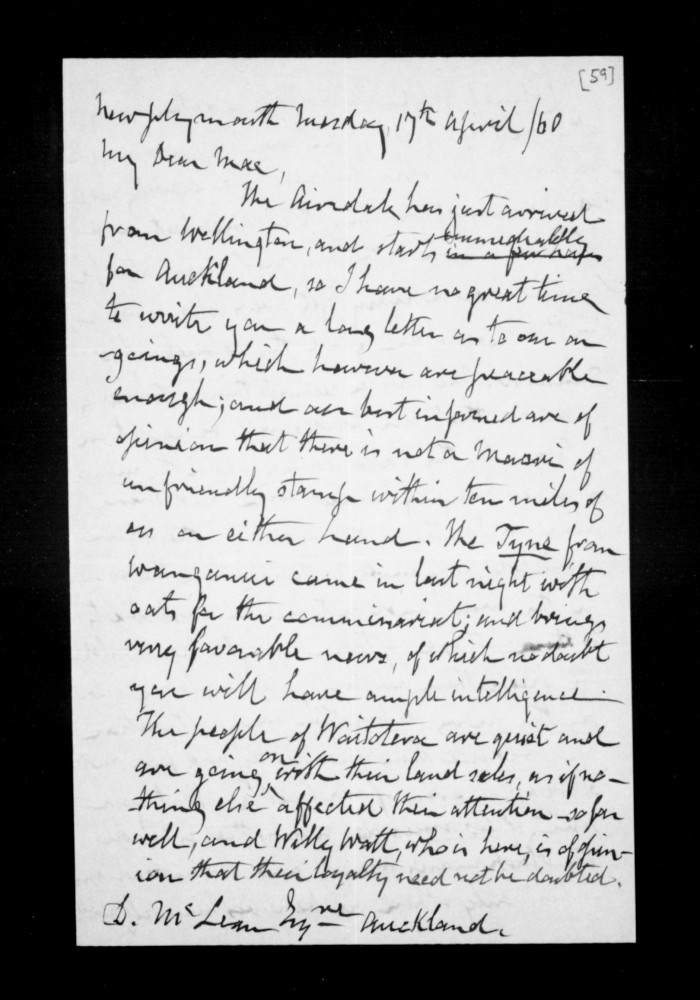 [59]
New Plymouth Tuesday, 17th April /60
My Dear Mac,
The Airedale has just arrived
from Wellington, and starts in a few hours immediately
for Auckland, so I have no great time
to write you a long letter as to our on
goings, which however are peaceable
enough; and our best informed are of
opinion that there is not a Maori of
unfriendly stamp within ten miles of
us on either hand. The Tyne from
Wanganui came in last night with
oats for the commissariat; and brings
very favorable news, of which no doubt
you will have ample intelligence.
The people of Waitotera are quiet and
are going on with their land sales, as if no-
thing else affected their attention - so far
well, and Willy Watt, who is here, is of opin-
ion that their loyalty need not be doubted.
D. McLean Esqre Auckland.